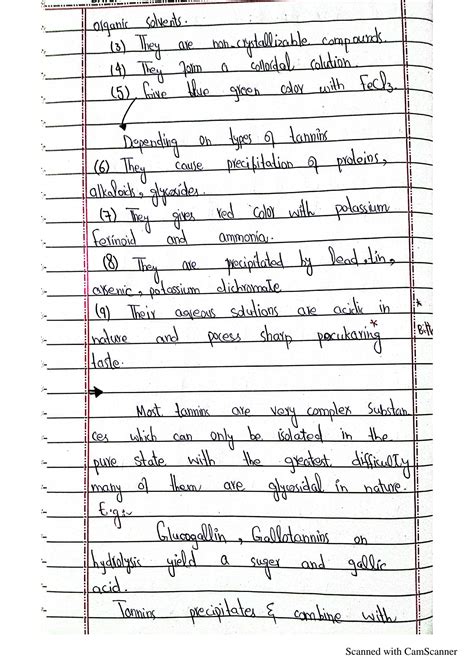 organic solvents.
(3) They are non-crystallizable compounds.
(4) They form a colloidal solution.
(5) Give blue green color with FeCl3.
Depending on types of tannins
(6) They cause precipitation of proteins,
alkaloids, glycosides.
(7) They gives red color with potassium
ferinoid and ammonia.
(8) They are precipitated by lead, tin,
arsenic, potassium dichromate
(9) Their aqeous solutions are acidic in *
nature and posess sharp puckaring * Bitt
taste.
Most tannins are very complex Substan
ces which can only be isolated in the
pure state with the greatest difficulty
many of them are glycosidal in nature.
E.g:-
Glucogallin, Gallotannins on
hydrolysis yield a suger and gallic
acid.
Tannins precipitates & combine with
Scanned with CamScanner